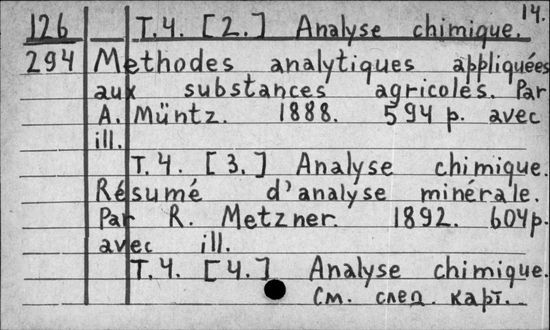 14.
126 T.4. [2.] Analyse chimique.
294 Methodes analytiques appliquées
aux substances agricoles. Par
A. Müntz. 1888. 594 p. avec
ill.
T.4. [3.] Analyse chimique.
Résumé d'analyse minérale.
Par R. Metzner. 1892. 604 p.
avec ill.
T.4. [4.] Analyse chimique.
См. след. карт.